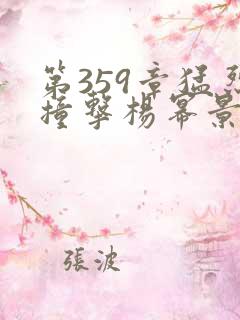 第359章猛烈
撞擊楊幂景
張波